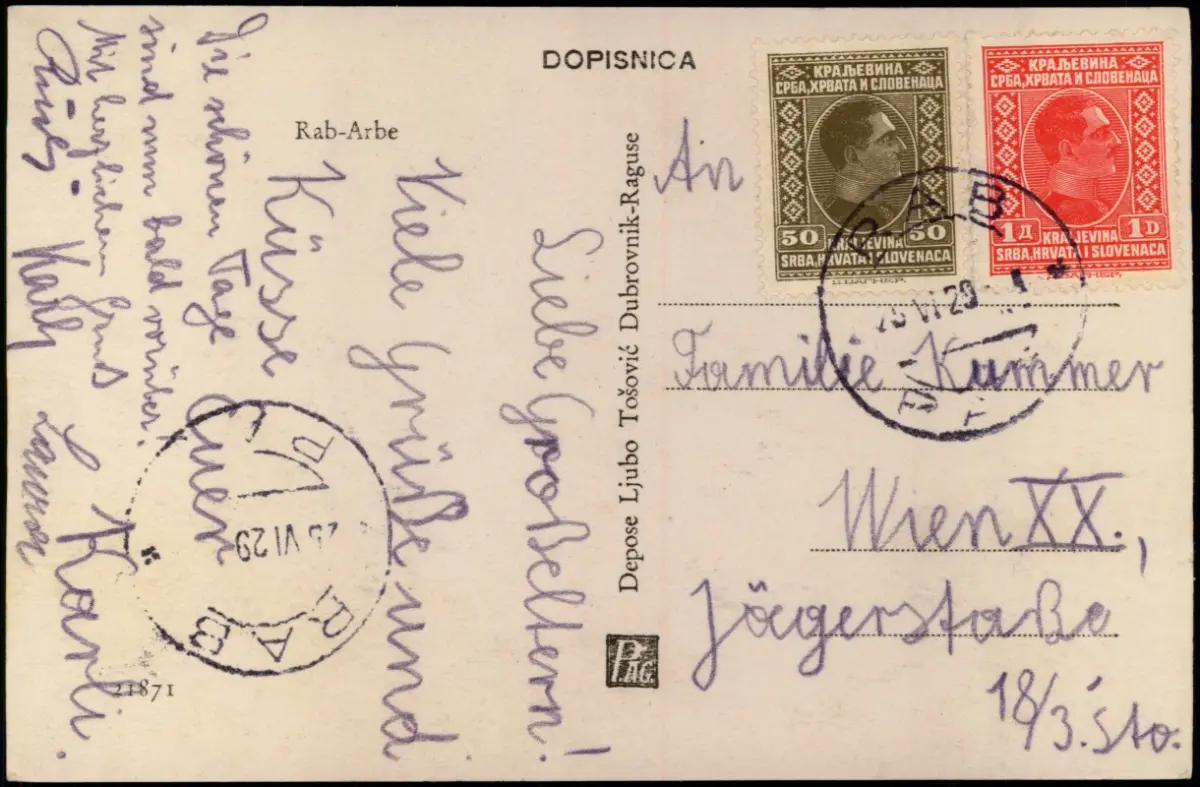 DOPISNICA
Rab-Arbe
Liebe Großeltern!
Viele Grüße und
Küsse
Euer
Karli.
Die schönen Tage
sind nun bald vorüber!
Mit herzlichem Gruß
Karly
Depose Ljubo Tošović Dubrovnik-Raguse
21871
КРАЉЕВИНА
СРБА, ХРВАТА И СЛОВЕНАЦА
50 50
KRALJEVINA
SRBA, HRVATA I SLOVENACA
КРАЉЕВИНА
СРБА, ХРВАТА И СЛОВЕНАЦА
1Д 1D
KRALJEVINA
SRBA, HRVATA I SLOVENACA
RAB
VI 29
РАБ
An
Familie Kummer
Wien XX.,
Jägerstaße
18/3. Sto.
RAB
VI 29